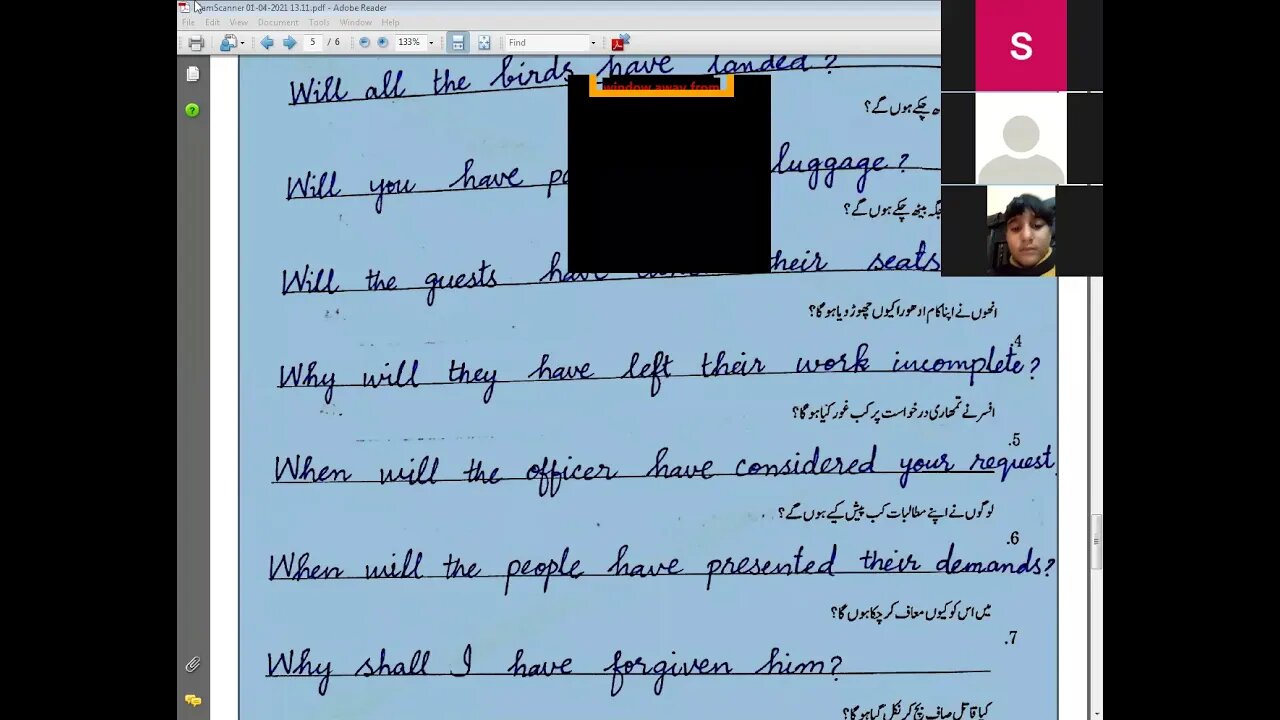 amScanner 01-04-2021 13.11.pdf - Adobe Reader
File Edit View Document Tools Window Help
5 / 6 133% Find
S
Will all the birds have landed?
window away from
چکے ہوں گے؟
Will you have luggage?
جگہ بیٹھ چکے ہوں گے؟
Will the guests have their seats
انھوں نے اپنا کام ادھورا کیوں چھوڑ دیا ہو گا؟
.4
Why will they have left their work incomplete?
افسر نے تمھاری درخواست پر کب غور کیا ہو گا؟
.5
When will the officer have considered your request
لوگوں نے اپنے مطالبات کب پیش کیے ہوں گے؟
.6
When will the people have presented their demands?
میں اس کو کیوں معاف کر چکا ہوں گا؟
.7
Why shall I have forgiven him?
کیا قاتل صاف بچ کر نکل گیا ہو گا؟